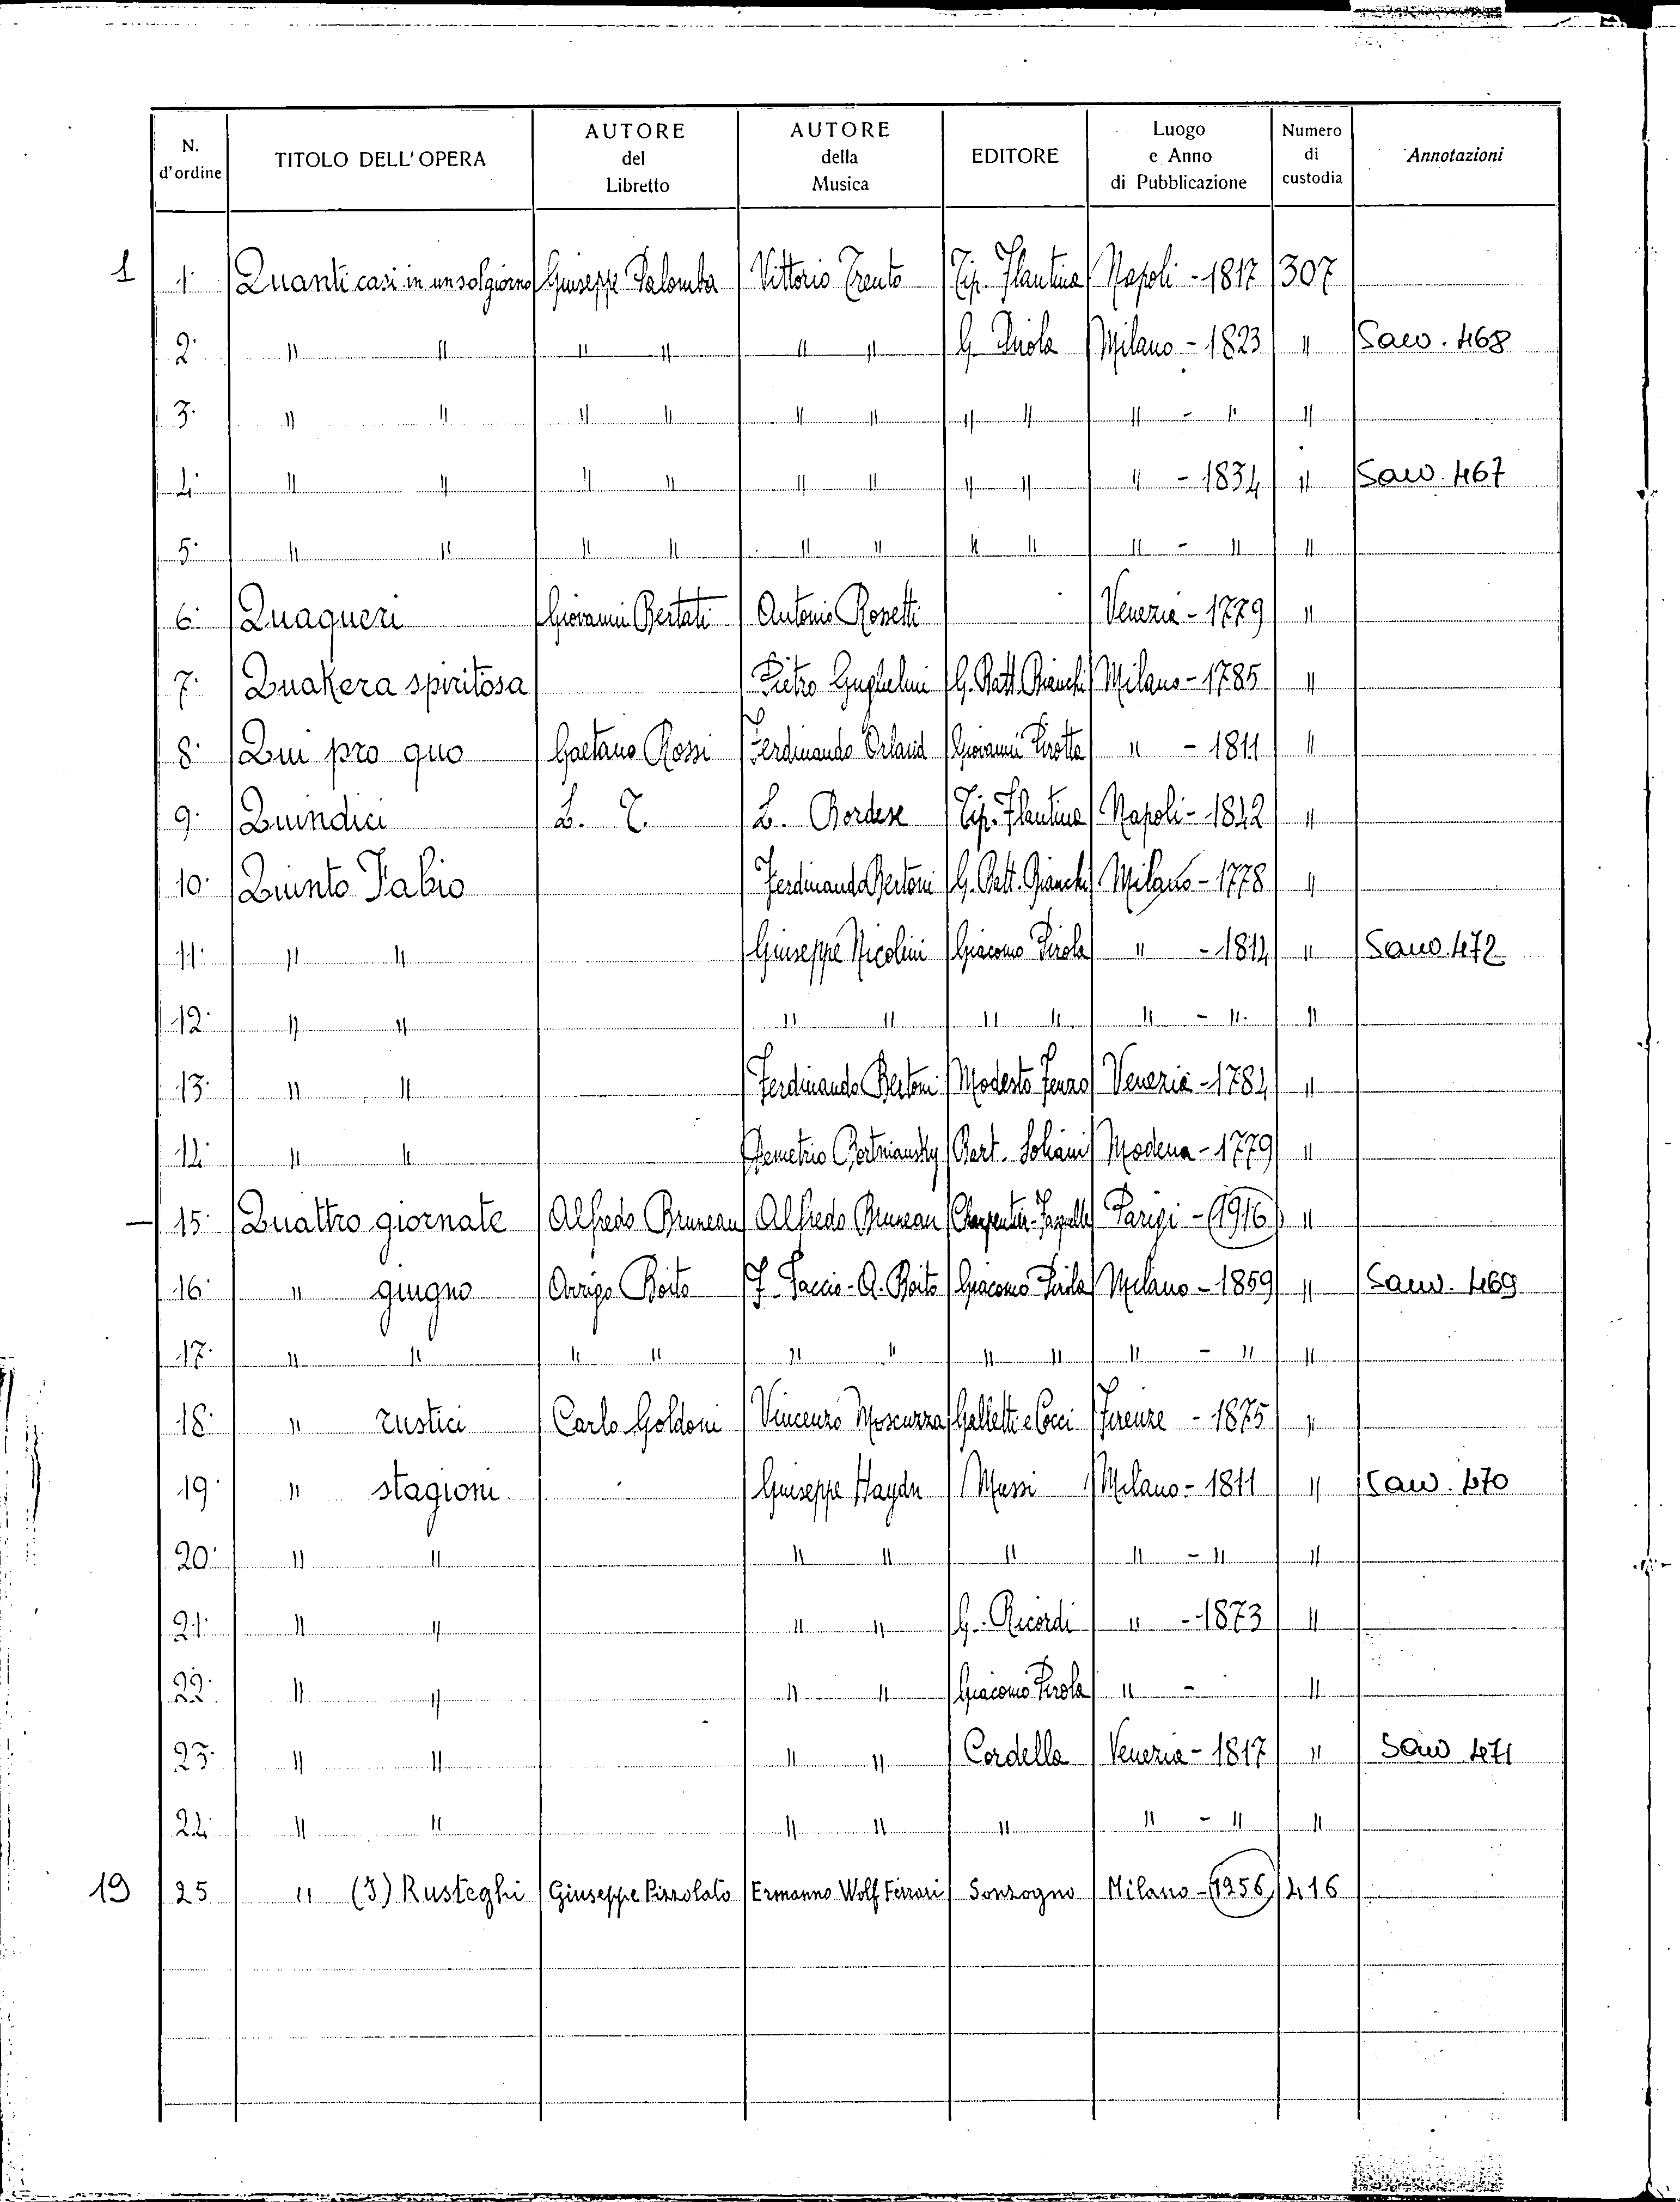 N. d'ordine | TITOLO DELL'OPERA | AUTORE del Libretto | AUTORE della Musica | EDITORE | Luogo e Anno di Pubblicazione | Numero di custodia | Annotazioni
1 1. Quanti casi in un sol giorno Giuseppe Palomba Vittorio Trento Tip. Flautina Napoli - 1817 307
2. " " " " " " G. Pirola Milano - 1823 " Saw. 468
3. " " " " " " " " " - " "
4. " " " " " " " " " - 1834 " Saw. 467
5. " " " " " " " " " - " "
6. Quaqueri Giovanni Bertati Antonio Rosetti Venezia - 1779 "
7. Quakera spiritosa Pietro Guglielmi G. Batt. Bianchi Milano - 1785 "
8. Qui pro quo Gaetano Rossi Ferdinando Orland Giovanni Pirotta " - 1811 "
9. Quindici L. T. L. Bordese Tip. Flautina Napoli - 1842 "
10. Quinto Fabio Ferdinando Bertoni G. Batt. Bianchi Milano - 1778 "
11. " " Giuseppe Nicolini Giacomo Pirola " - 1814 " Saw. 472
12. " " " " " " " - " "
13. " " Ferdinando Bertoni Modesto Fenzo Venezia - 1784 "
14. " " Demetrio Bortniansky Bart. Soliani Modena - 1779 "
15. Quattro giornate Alfredo Bruneau Alfredo Bruneau Charpentier-Fasquelle Parigi - 1916 "
16. " giugno Arrigo Boito F. Faccio - A. Boito Giacomo Pirola Milano - 1859 " Saw. 469
17. " " " " " " " " " - " "
18. " rustici Carlo Goldoni Vincenzo Moscuzza Galletti e Cocci Firenze - 1875 "
19. " stagioni Giuseppe Haydn Mussi Milano - 1811 " Saw. 470
20. " " " " " " - " "
21. " " " " G. Ricordi " - 1873 "
22. " " " " Giacomo Pirola " - "
23. " " " " Cordella Venezia - 1817 " Saw 471
24. " " " " " " - " "
19 25 " (I) Rusteghi Giuseppe Pizzolato Ermanno Wolf Ferrari Sonzogno Milano - 1956 416